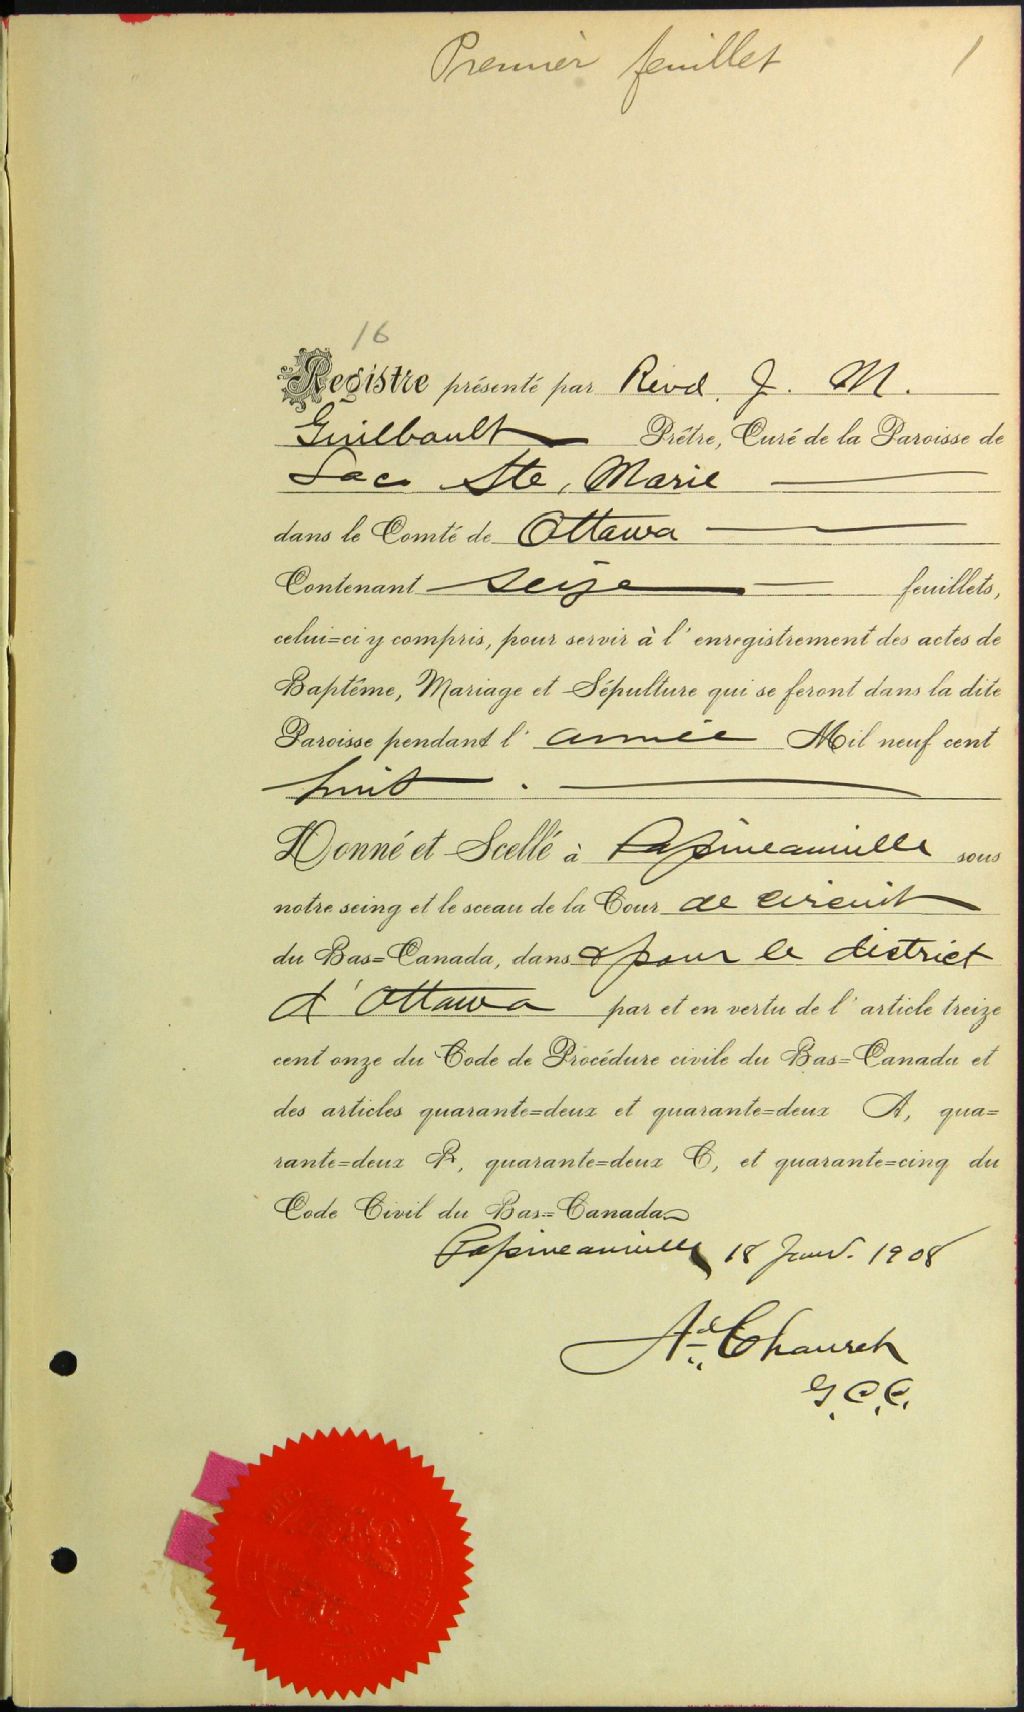 Premier feuillet 1
16
Registre présenté par Revd. J. M.
Guilbault Prêtre, Curé de la Paroisse de
Lac Ste, Marie
dans le Comté de Ottawa
Contenant seize feuillets,
celui=ci y compris, pour servir à l'enregistrement des actes de
Baptême, Mariage et Sépulture qui se feront dans la dite
Paroisse pendant l'année Mil neuf cent
huit.
Donné et Scellé à Papineauville sous
notre seing et le sceau de la Cour de circuit
du Bas=Canada, dans & pour le district
d'Ottawa par et en vertu de l'article treize
cent onze du Code de Procédure civile du Bas=Canada et
des articles quarante=deux et quarante=deux A, qua=
rante=deux B, quarante=deux C, et quarante=cinq du
Code Civil du Bas=Canada
Papineauville 18 Janv. 1908
Ad Chauret
G.C.C.